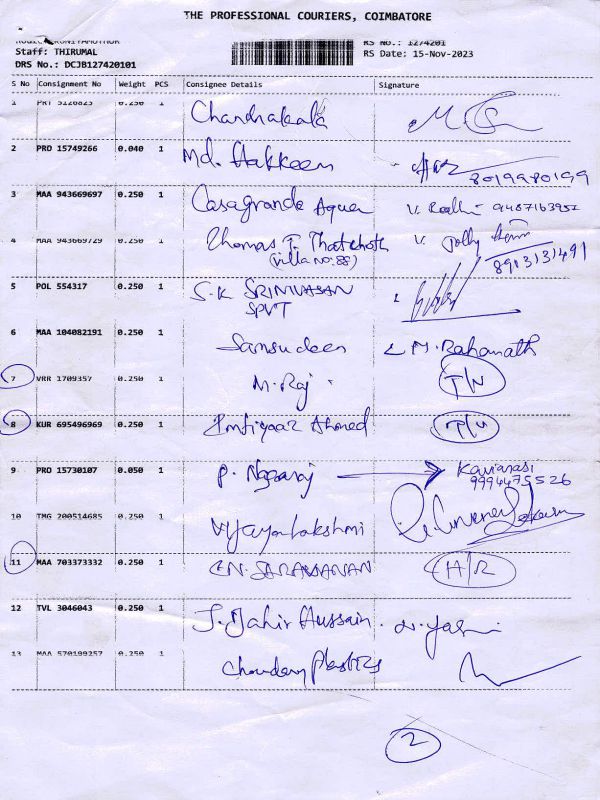 THE PROFESSIONAL COURIERS, COIMBATORE
RS No.: 1274201
Staff: THIRUMAL
RS Date: 15-Nov-2023
DRS No.: DCJB127420101
S No Consignment No Weight PCS Consignee Details Signature
1 PRT 5120823 0.250 1 Chandrakala
2 PRO 15749266 0.040 1 Md. Hakkeem 8019980199
3 MAA 943669697 0.250 1 Casagrande Aquea V. 9487163951
4 MAA 943669729 0.250 1 Thomas T. Thatthoth V. Jolly
(Villa no: 88) 8903131491
5 POL 554317 0.250 1 S.K SRINIVASAN
SPVT
6 MAA 104082191 0.250 1 Samsudeen M. Rahamath
7 VRR 1709357 0.250 1 M. Raj T/N
8 KUR 695496969 0.250 1 Imtiyaaz Ahmed
9 PRO 15730107 0.050 1 P. Nagaraj Kaviarasi
9994475526
10 TMG 200514685 0.250 1 Vijayalakshmi
11 MAA 703373332 0.250 1 EN. SARAVANAN H/R
12 TVL 3046043 0.250 1 J. Dahir Hussain.
13 MAA 570199257 0.250 1 Choudary Plastics
2